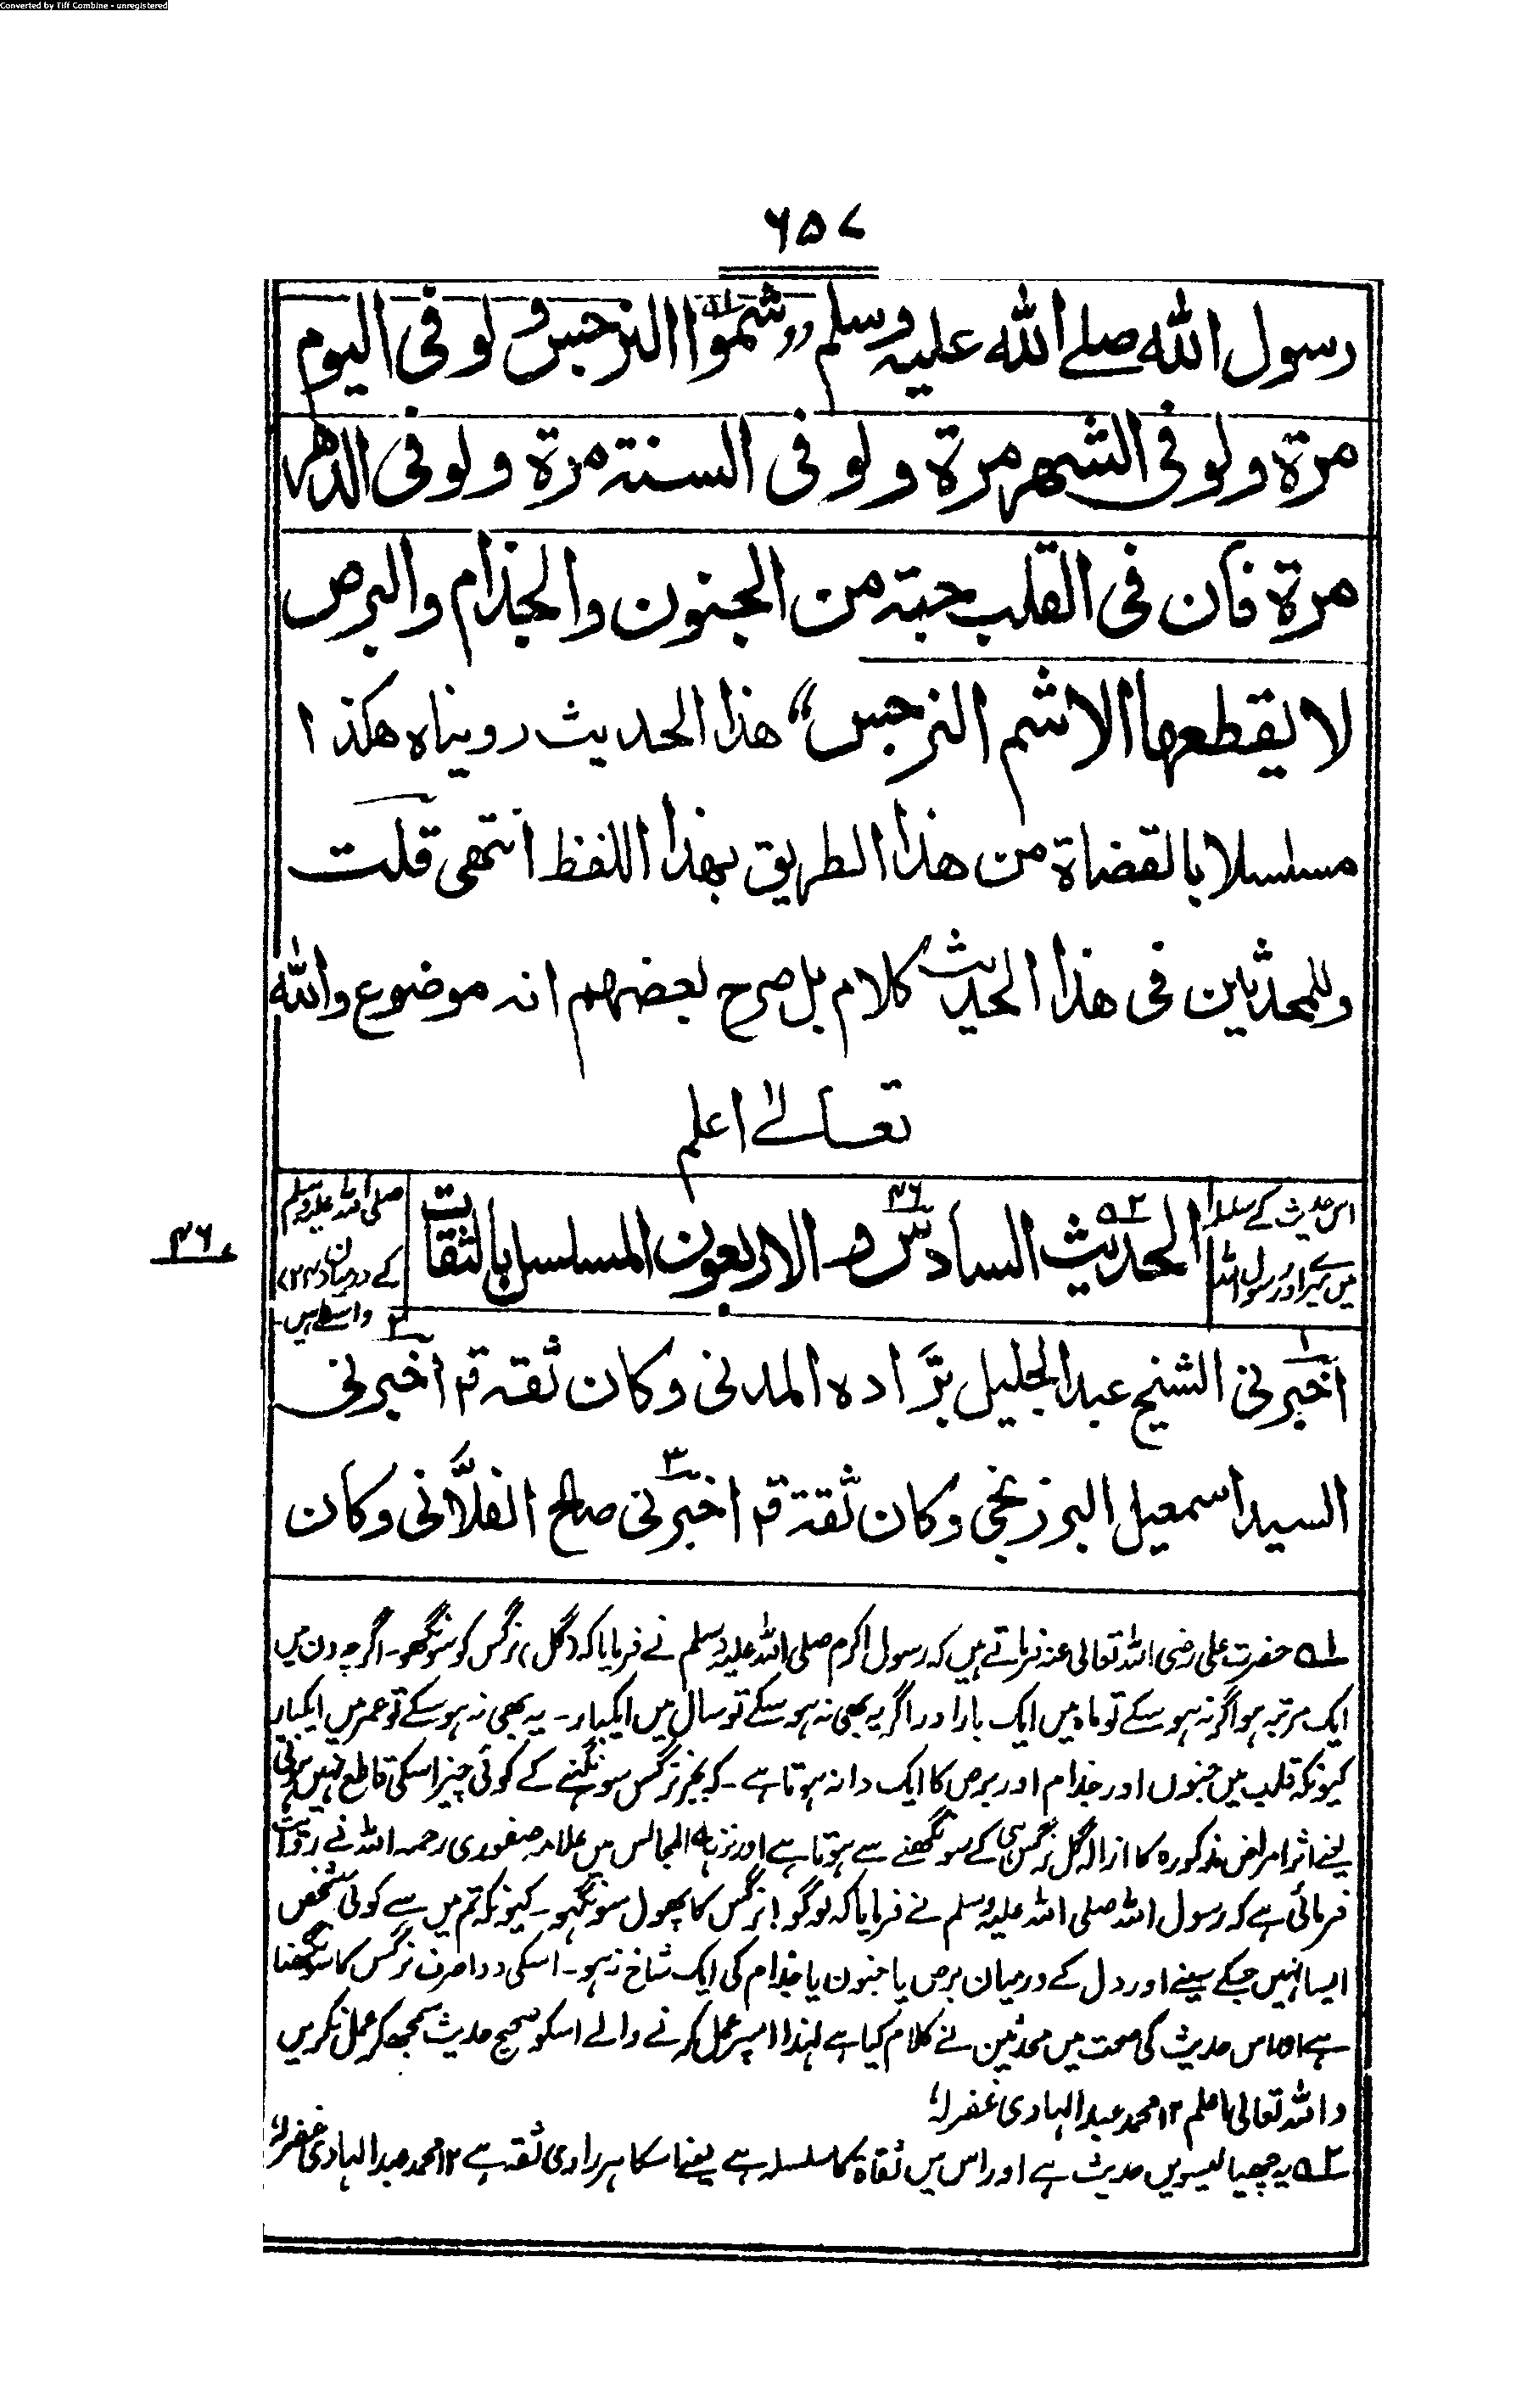 Converted by Tiff Combine - unregistered
۶۵۷
رسول الله صلے الله علیہ وسلم ”شموا النرجس ولو فی الیوم
مرة ولو فی الشهر مرة ولو فی السنتہ مرة ولو فی الدهر
مرة فان فی القلب حبتہ من الجنون والجذام والبرص
لا یقطعها الا شم النرجس“ هذا الحدیث رویناه هکذا
مسلسلا بالقضاة من هذا الطریق بهذا اللفظ انتهی قلت
وللمحدثین فی هذا الحدیث کلام بل صرح بعضهم انہ موضوع والله
تعالےٰ اعلم
اس حدیث کے سلسلہ
میں میرے اور رسول اللہ
الحدیث السادس والاربعون المسلسل بالثقات
صلی اللہ علیہ وسلم
کے درمیان (۲۴)
واسطے ہیں۔
ع ۴۶
اخبرنی الشیخ عبدالجلیل برّاده المدنی وکان ثقہ قہ اخبرنی
السید اسمعیل البرزنجی وکان ثقة قہ اخبرنی صالح الفلّانی وکان
۵۱ حضرت علی رضی اللہ تعالی عنہ فرماتے ہیں کہ رسول اکرم صلی اللہ علیہ وسلم نے فرمایا کہ (گل) نرگس کو سونگھو۔ اگرچہ دن میں
ایک مرتبہ ہو اگر نہ ہو سکے تو ماہ میں ایک بار اور اگر یہ بھی نہ ہو سکے تو سال میں ایکبار۔ یہ بھی نہ ہو سکے تو عمر میں ایکبار
کیونکہ قلب میں جنوں اور جذام اور برص کا ایک دانہ ہوتا ہے۔ کہ بجز نرگس سونگنے کے کوئی چیز اسکی قاطع نہیں ہوتی
یعنے اثر امراض مذکورہ کا ازالہ گل نرگس ہی کے سونگھنے سے ہوتا ہے اور نزہۃ المجالس میں علامہ صفوری رحمہ اللہ نے روایت
فرمائی ہے کہ رسول اللہ صلی اللہ علیہ وسلم نے فرمایا کہ لوگو! نرگس کا پھول سونگہو۔ کیونکہ تم میں سے کوئی شخص
ایسا نہیں جسکے سینے اور دل کے درمیان برص یا جنون یا جذام کی ایک شاخ نہ ہو۔ اسکی دوا صرف نرگس کا سونگھنا
ہے اور اس حدیث کی صحت میں محدثین نے کلام کیا ہے لہذا اسپر عمل کرنے والے اسکو صحیح حدیث سمجھ کر عمل نکریں
واللہ تعالی اعلم ۱۲ محمد عبدالہادی غفرلہٗ
۵۲ یہ چھیالیسویں حدیث ہے اور اس میں ثقاة کا سلسلہ ہے یعنے اسکا ہر راوی ثقہ ہے ۱۲ محمد عبدالہادی غفرلہٗ